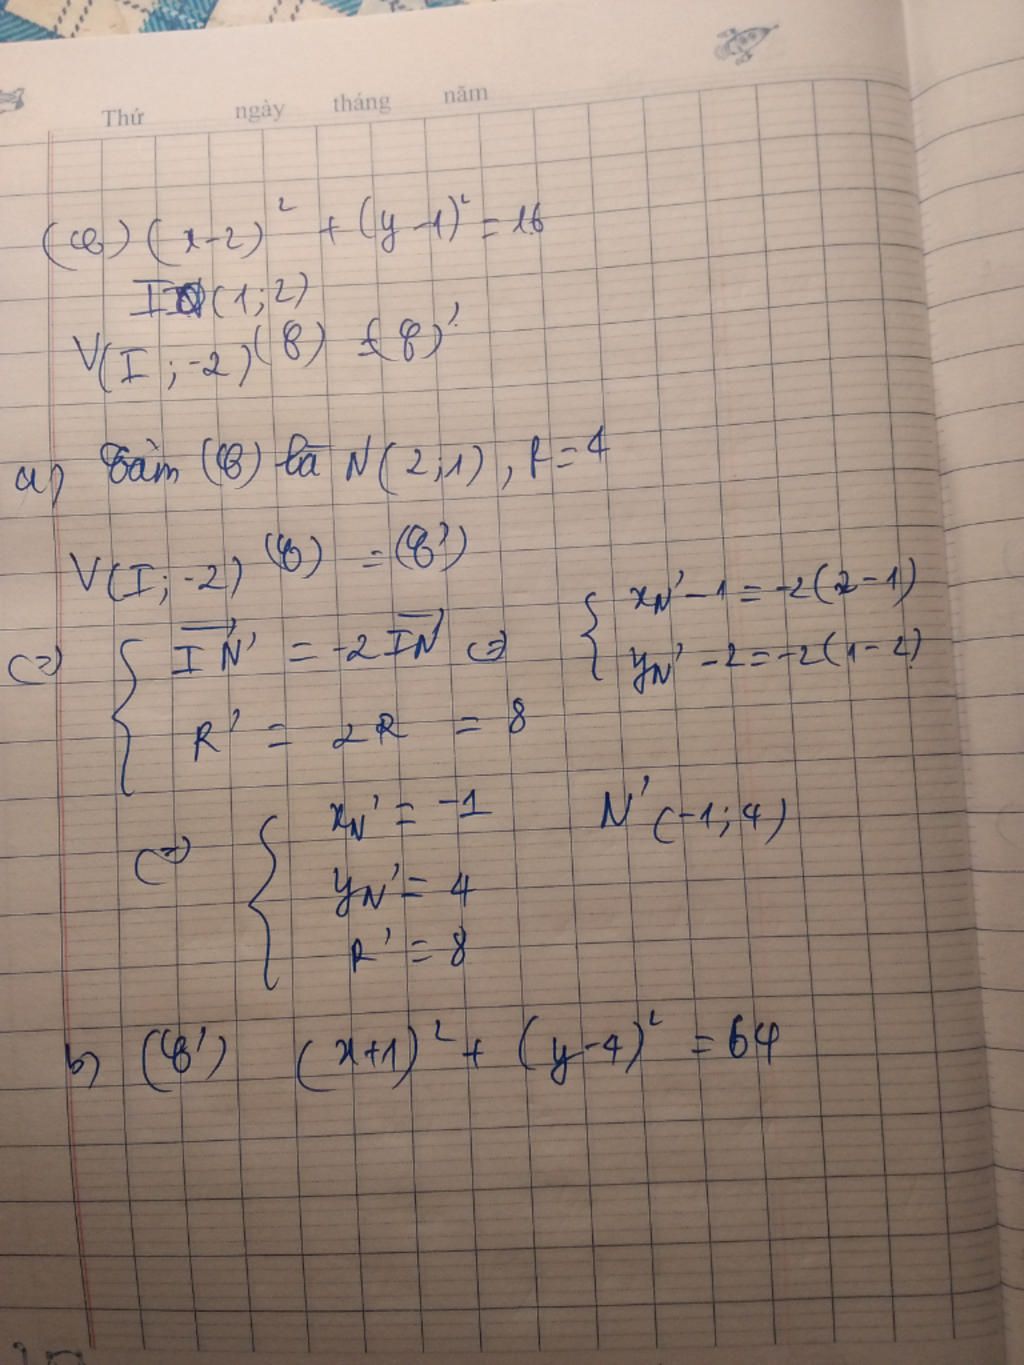 Thứ ngày tháng năm
(C) (x-2)² + (y-1)² = 16
I (1;2)
V(I;-2) (C) = (C)'
a) Tâm (C) là N(2;1), R=4
V(I;-2) (C) = (C')
<=> { IN'→ = -2IN→ <=> { xN' - 1 = -2(2-1)
yN' - 2 = -2(1-2)
R' = 2R = 8
<=> { xN' = -1 N'(-1;4)
yN' = 4
R' = 8
b) (C') (x+1)² + (y-4)² = 64